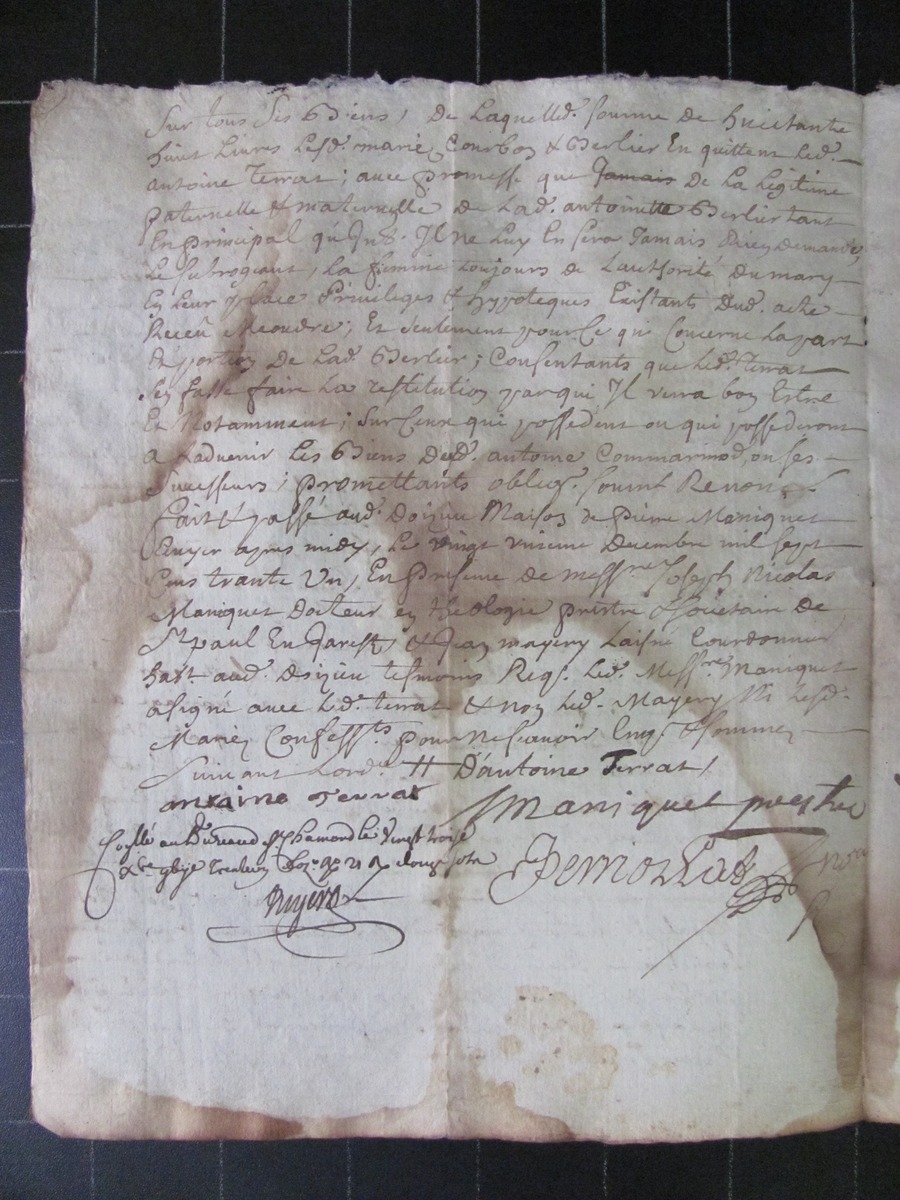 Sur tous Ses Biens, De Laquelled. somme de huictante
huict Livres Lesd. mariez Courbon & Berlier En quittent Led.
antoine Terrat; avec promesse que Jamais De La Legitime
paternelle & maternelle de Lad. antoinette Berlier tant
En principal qu'Int. Il ne Luy En sera Jamais Rien demandé,
Le subrogeant, La femme toujours de Lauthorité du mary
En Leur place Privileges & hypoteques Existants Dud. acte
Receu ; Et seulement pour Ce qui Concerne La part
& portion De Lad. Berlier; Consentants que Led. Terrat
s'en fasse faire La restitution par qui Il verra bon Estre
Et Notamment; sur Ceux qui possedent ou qui possederont
a Ladvenir Les Biens Dud. antoine Commarmod, ou ses
Successeurs; promettants oblig. soumt Renon.
fait & passé aud. Doizieu Maison de Pierre Maniquet
apres midy, Le vingt unieme Decembre mil sept
Cens trante Un, En presence de messre Joseph Nicolas
Maniquet Docteur en theologie prestre & societaire de
St paul En Jarest, & Jean mayery Laisné Courdonnier
habt. aud. Doizieu tesmoins Reqs. Led. Messre Maniquet
a signé avec Led. terrat & non Led. Mayery Ni Lesd.
Mariez Confessts pour ne scavoir Enqs & sommez
Suivant Lord. # D'antoine Terrat,
antoine terrat
Maniquet prestre
Collé au Bureaud St Chamond le vingt trois
Xbre douze sols